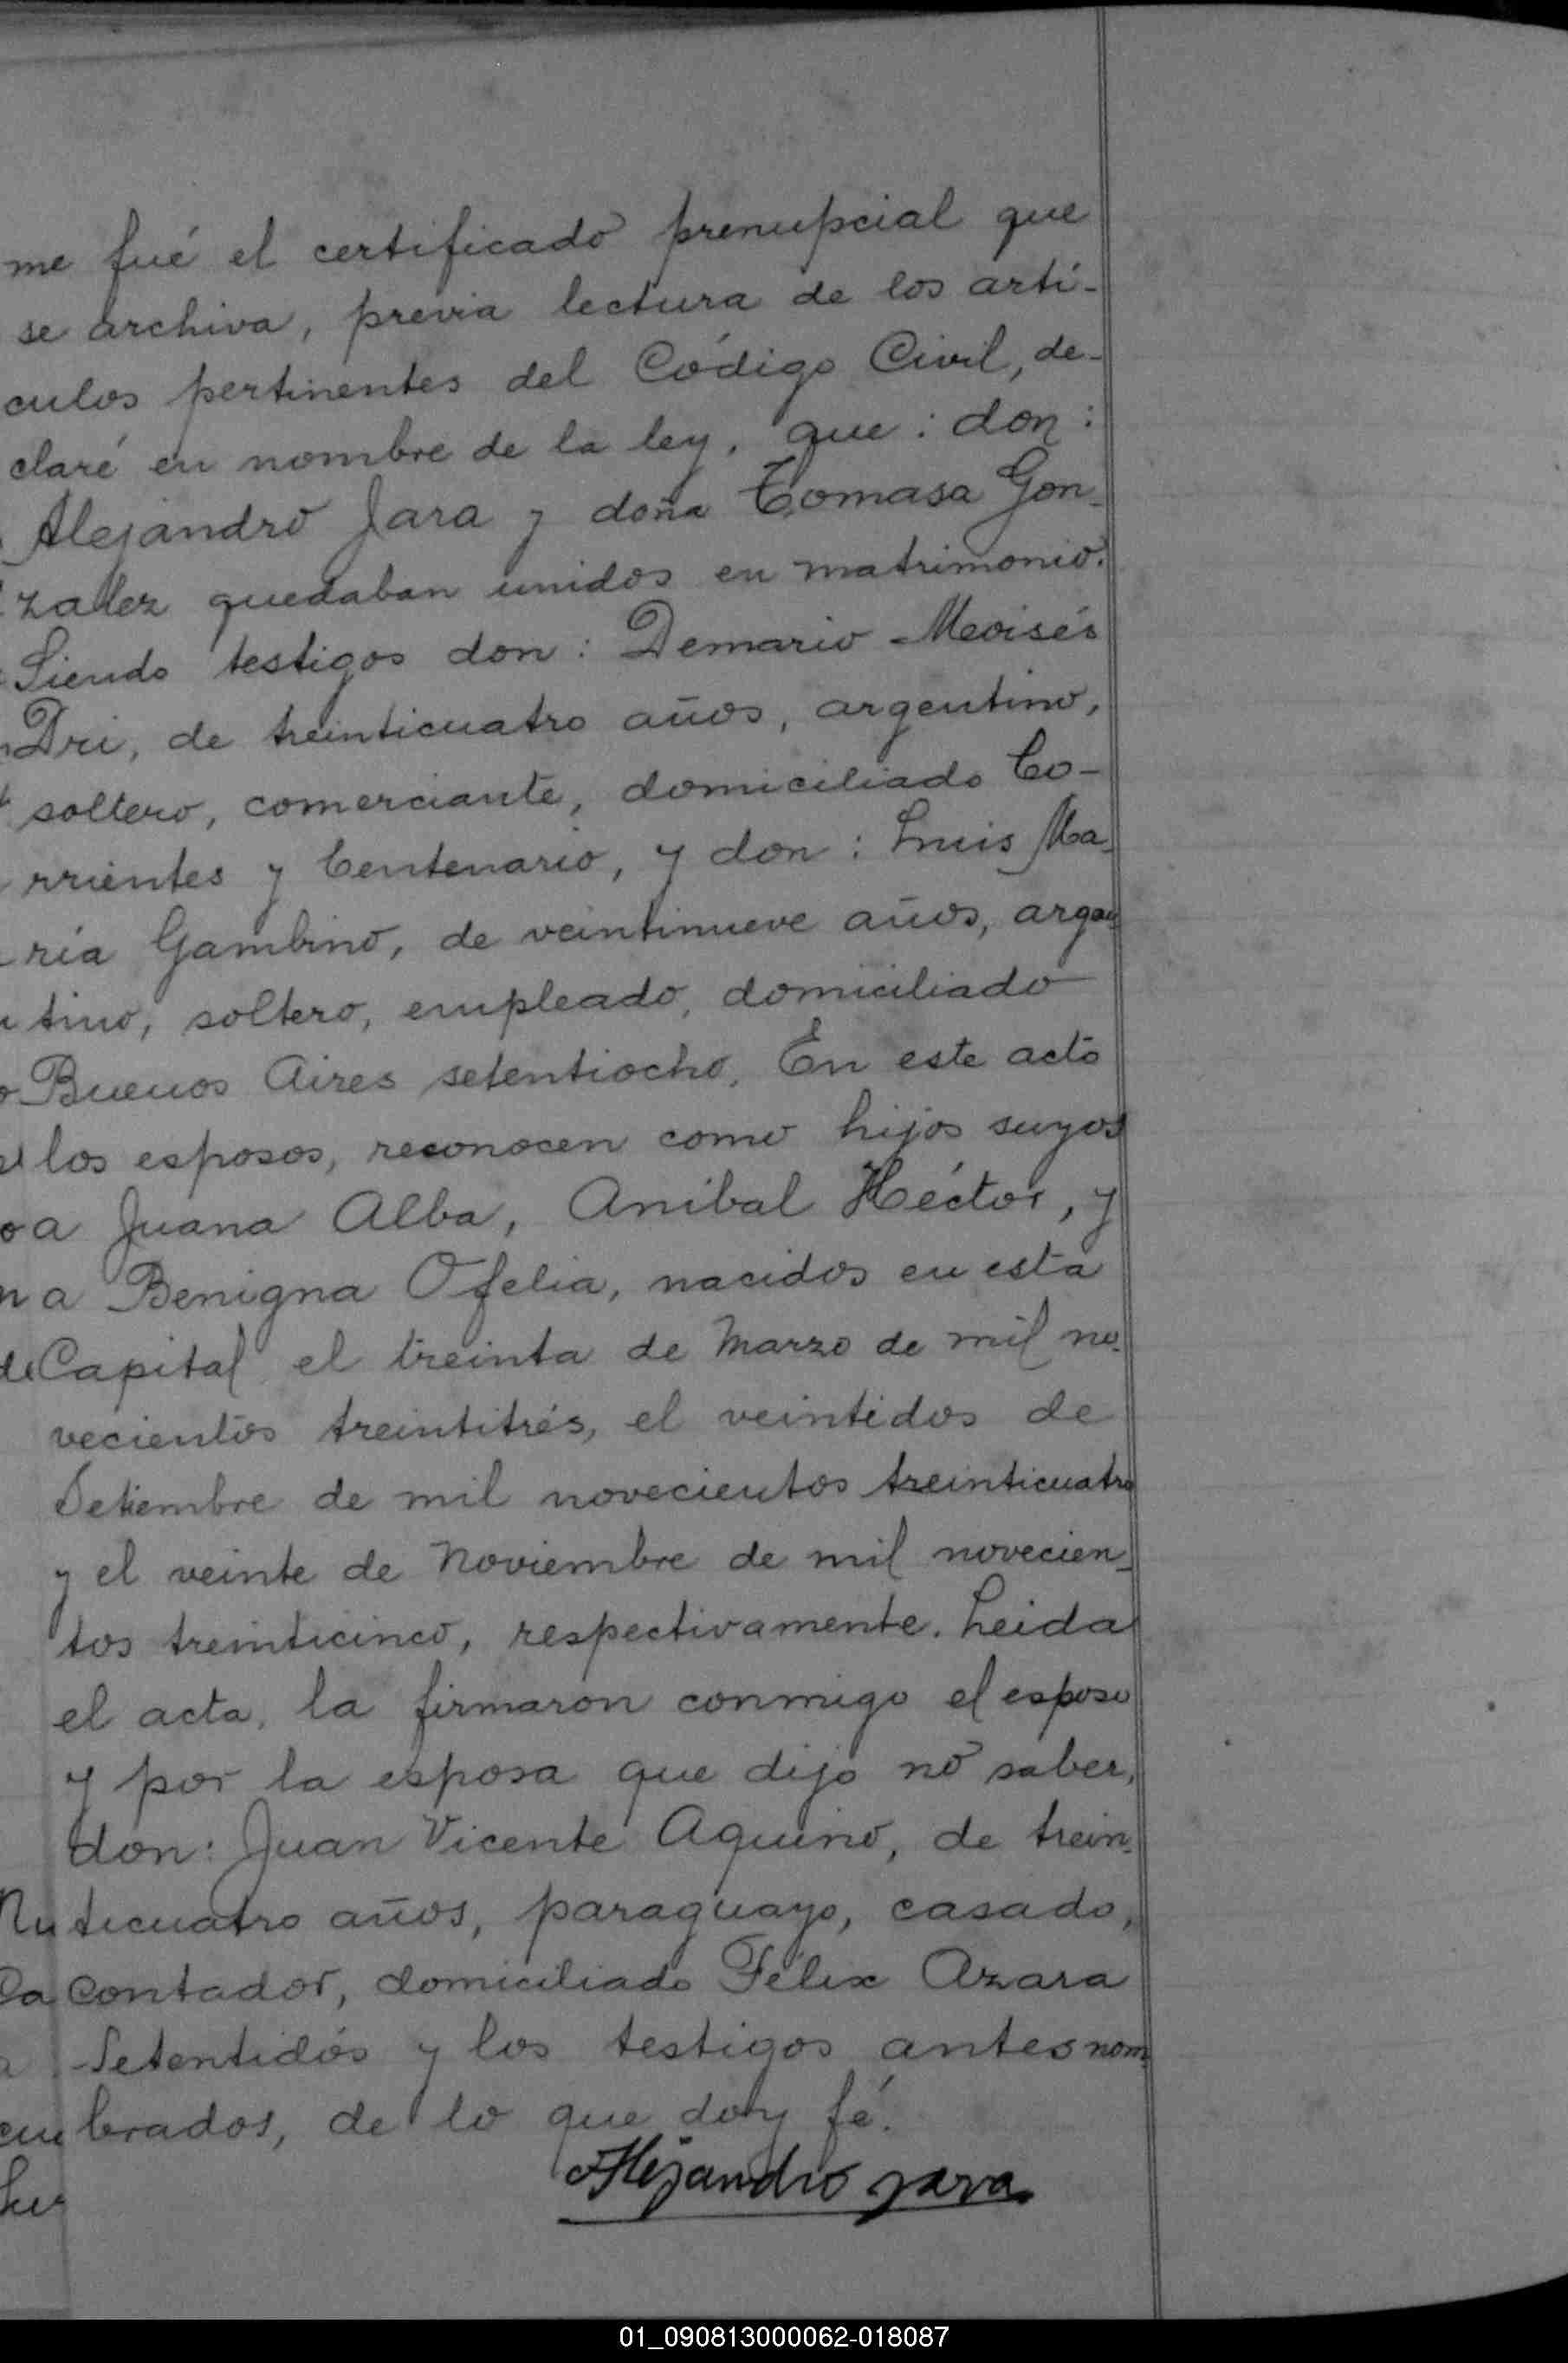 me fué el certificado prenupcial que
se archiva, previa lectura de los artí-
culos pertinentes del Código Civil, de-
claré en nombre de la ley, que: don:
Alejandro Jara y doña Tomasa Gon-
zalez quedaban unidos en matrimonio.
Siendo testigos don: Demario Moisés
Dri, de treinticuatro años, argentino,
soltero, comerciante, domiciliado Co-
rrientes y Centenario, y don: Luis Ma-
ría Gambino, de veintinueve años, argen-
tino, soltero, empleado, domiciliado
Buenos Aires setentiocho. En este acto
los esposos, reconocen como hijos suyos
a Juana Alba, Anibal Héctor, y
a Benigna Ofelia, nacidos en esta
Capital el treinta de Marzo de mil no-
vecientos treintitrés, el veintidos de
Setiembre de mil novecientos treinticuatro
y el veinte de Noviembre de mil novecien-
tos treinticinco, respectivamente. Leida
el acta, la firmaron conmigo el esposo
y por la esposa que dijo no saber,
don: Juan Vicente Aquino, de trein-
ticuatro años, paraguayo, casado,
contador, domiciliado Félix Azara
Setentidós y los testigos antes nom-
brados, de lo que doy fé.
Alejandro Jara
01_090813000062-018087